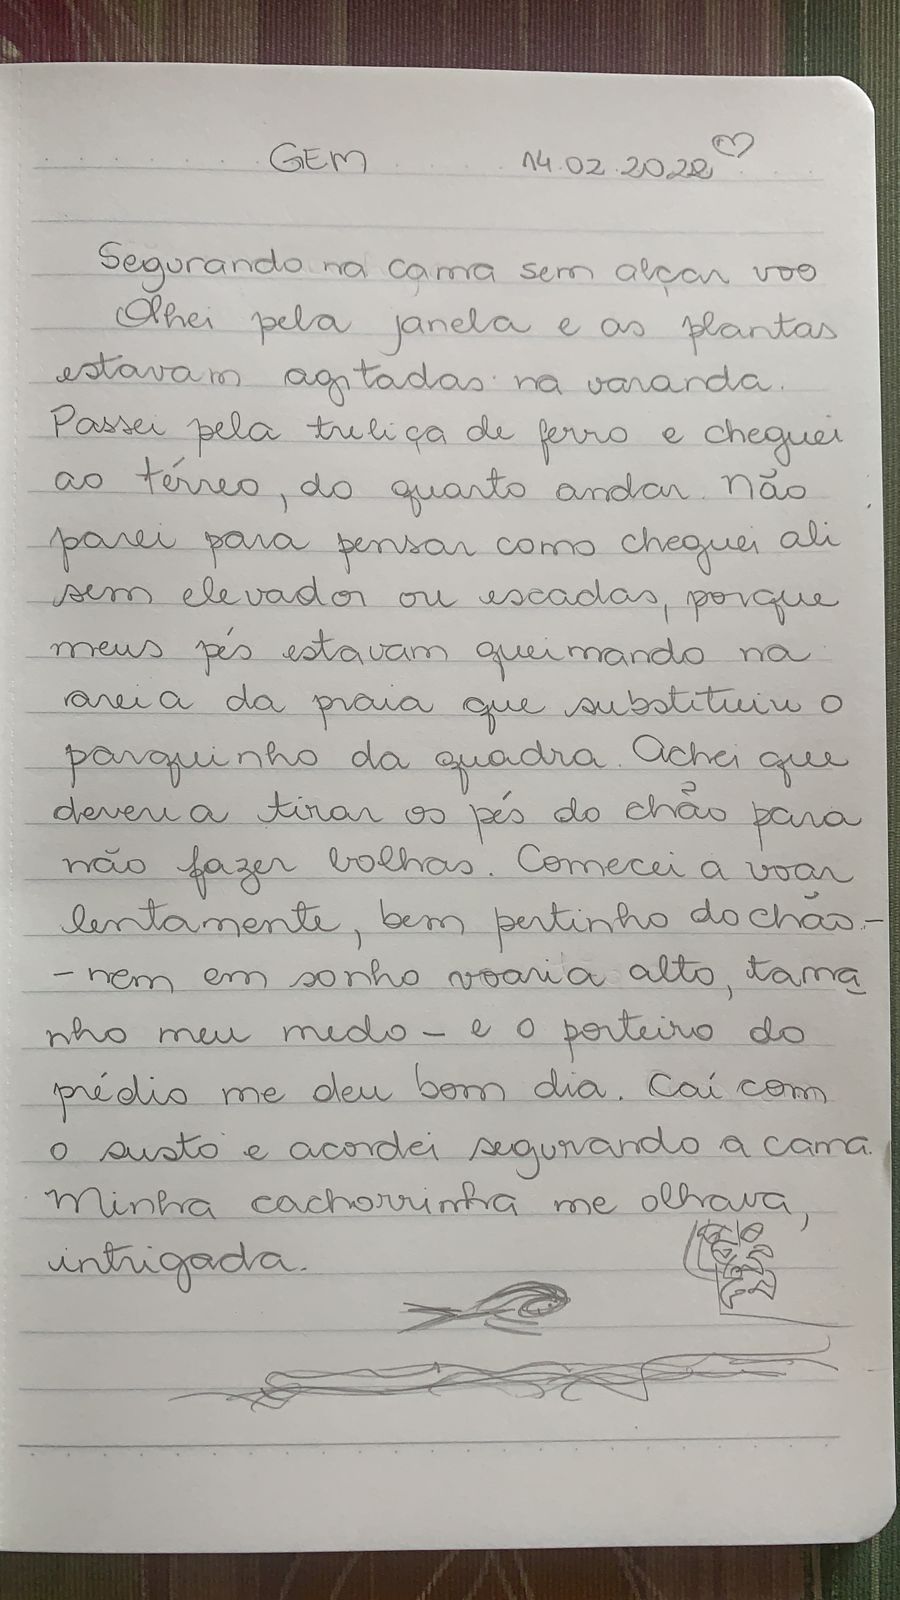 GEM 14.02.2022
Segurando na cama sem alçar voo
Olhei pela janela e as plantas
estavam agitadas na varanda.
Passei pela treliça de ferro e cheguei
ao térreo, do quarto andar. Não
parei para pensar como cheguei ali
sem elevador ou escadas, porque
meus pés estavam queimando na
areia da praia que substituiu o
parquinho da quadra. Achei que
deveria tirar os pés do chão para
não fazer bolhas. Comecei a voar
lentamente, bem pertinho do chão -
- nem em sonho voaria alto, tama
nho meu medo - e o porteiro do
prédio me deu bom dia. Caí com
o susto e acordei segurando a cama.
Minha cachorrinha me olhava,
intrigada.